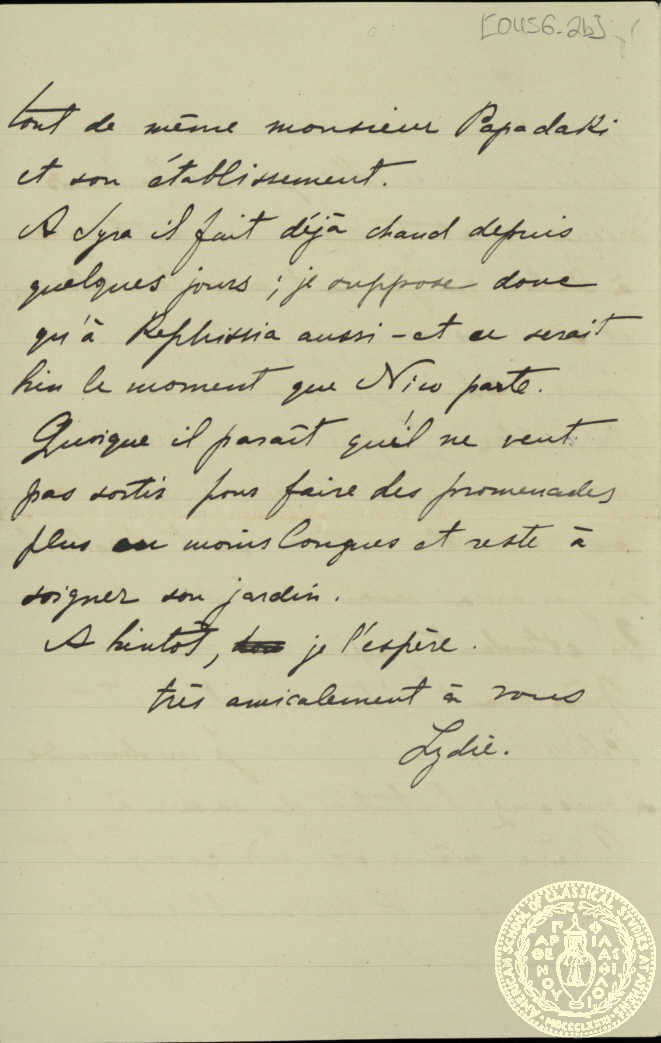 [0456-2b]
tout de même monsieur Papadaki
et son établissement.
A Syra il fait déjà chaud depuis
quelques jours ; je suppose donc
qu'à Kephissia aussi - et ce serait
bien le moment que Nico parte.
Quoique il paraît qu'il ne veut
pas sortir pour faire des promenades
plus ou moins longues et reste à
soigner son jardin.
A bientôt, je l'espère.
très amicalement à vous
Lydie.
AMERICAN SCHOOL OF CLASSICAL STUDIES AT ATHENS
ΠΑΡΘΕΝΟΥ ΦΙΛΑΣ ΦΙΛΟΙ
MDCCCLXXXI